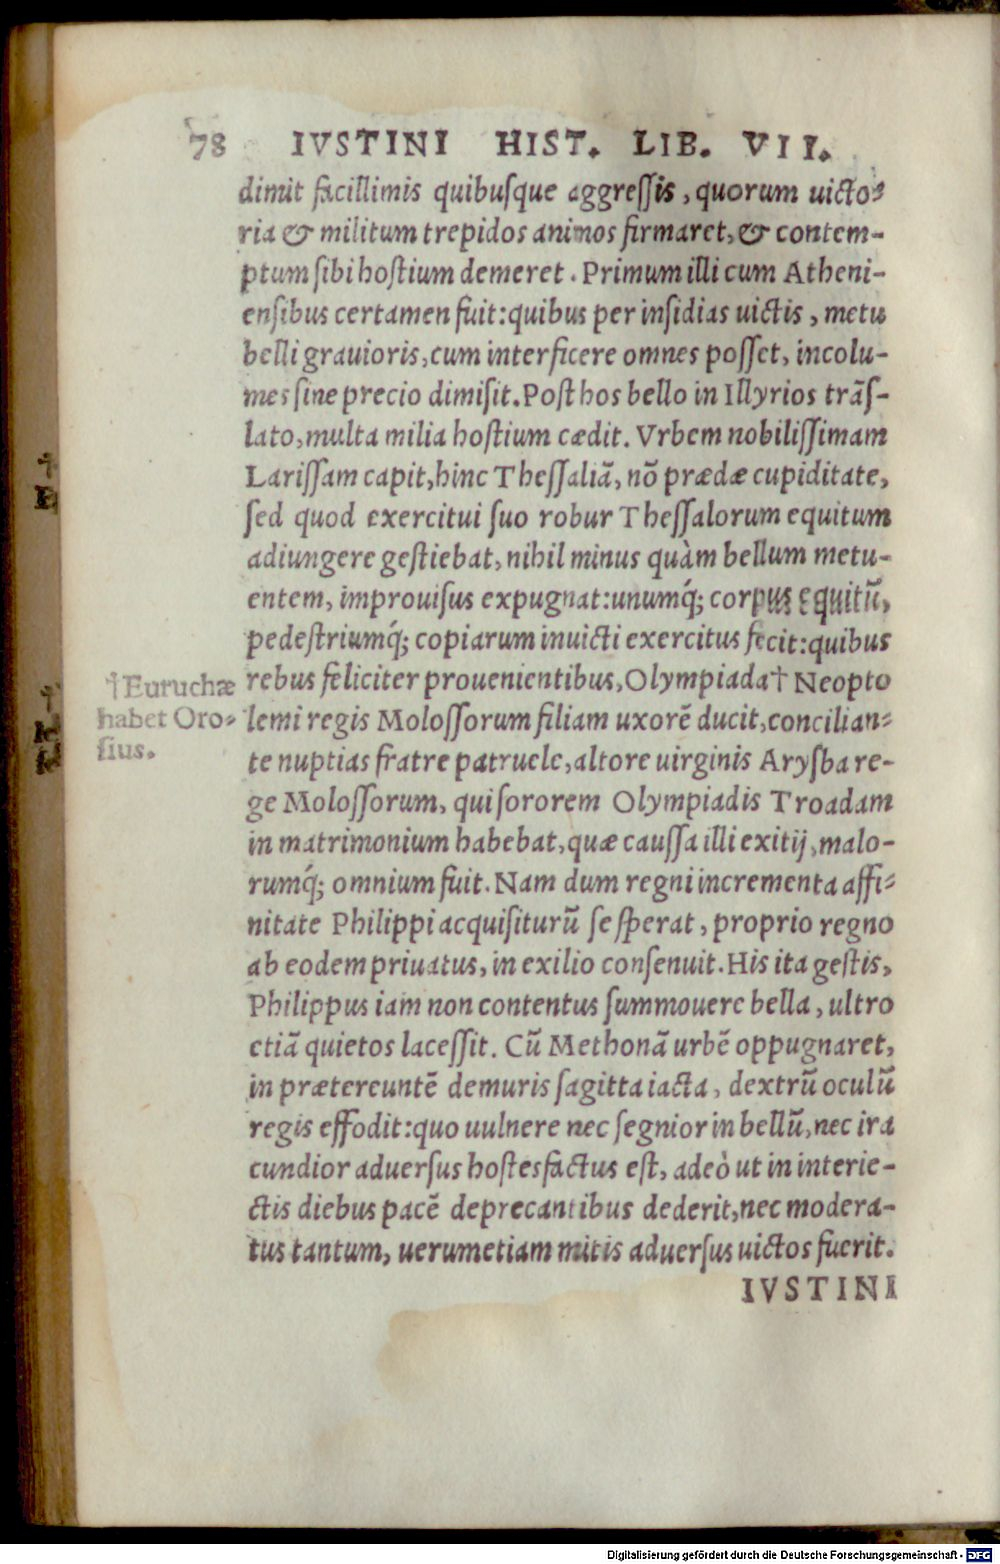 78 IVSTINI HIST. LIB. VII.
dimit facillimis quibuſque aggreſſis, quorum uicto-
ria & militum trepidos animos firmaret, & contem-
ptum ſibi hoſtium demeret. Primum illi cum Atheni-
enſibus certamen fuit: quibus per inſidias uictis, metu
belli grauioris, cum interficere omnes poſſet, incolu-
mes ſine precio dimiſit. Poſt hos bello in Illyrios trãſ-
lato, multa milia hoſtium cædit. Vrbem nobiliſſimam
Lariſſam capit, hinc Theſſaliã, nõ prædæ cupiditate,
ſed quod exercitui ſuo robur Theſſalorum equitum
adiungere geſtiebat, nihil minus quàm bellum metu-
entem, improuiſus expugnat: unumq́; corpus equitũ,
pedeſtriumq́; copiarum inuicti exercitus fecit: quibus
rebus feliciter prouenientibus, Olympiada † Neopto
lemi regis Moloſſorum filiam uxorẽ ducit, concilian-
te nuptias fratre patruele, altore uirginis Arysba re-
ge Moloſſorum, qui ſororem Olympiadis Troadam
in matrimonium habebat, quæ cauſſa illi exitij, malo-
rumq́; omnium fuit. Nam dum regni incrementa affi-
nitate Philippi acquiſiturũ ſe ſperat, proprio regno
ab eodem priuatus, in exilio conſenuit. His ita geſtis,
Philippus iam non contentus ſummouere bella, ultro
etiã quietos laceſſit. Cũ Methonã urbẽ oppugnaret,
in prætereuntẽ de muris ſagitta iacta, dextrũ oculũ
regis effodit: quo uulnere nec ſegnior in bellũ, nec ira
cundior aduerſus hoſtes factus eſt, adeò ut in interie-
ctis diebus pacẽ deprecantibus dederit, nec modera-
tus tantum, uerumetiam mitis aduerſus uictos fuerit.
IVSTINI
† Euruchæ
habet Oro-
ſius.
Digitalisierung gefördert durch die Deutsche Forschungsgemeinschaft - DFG